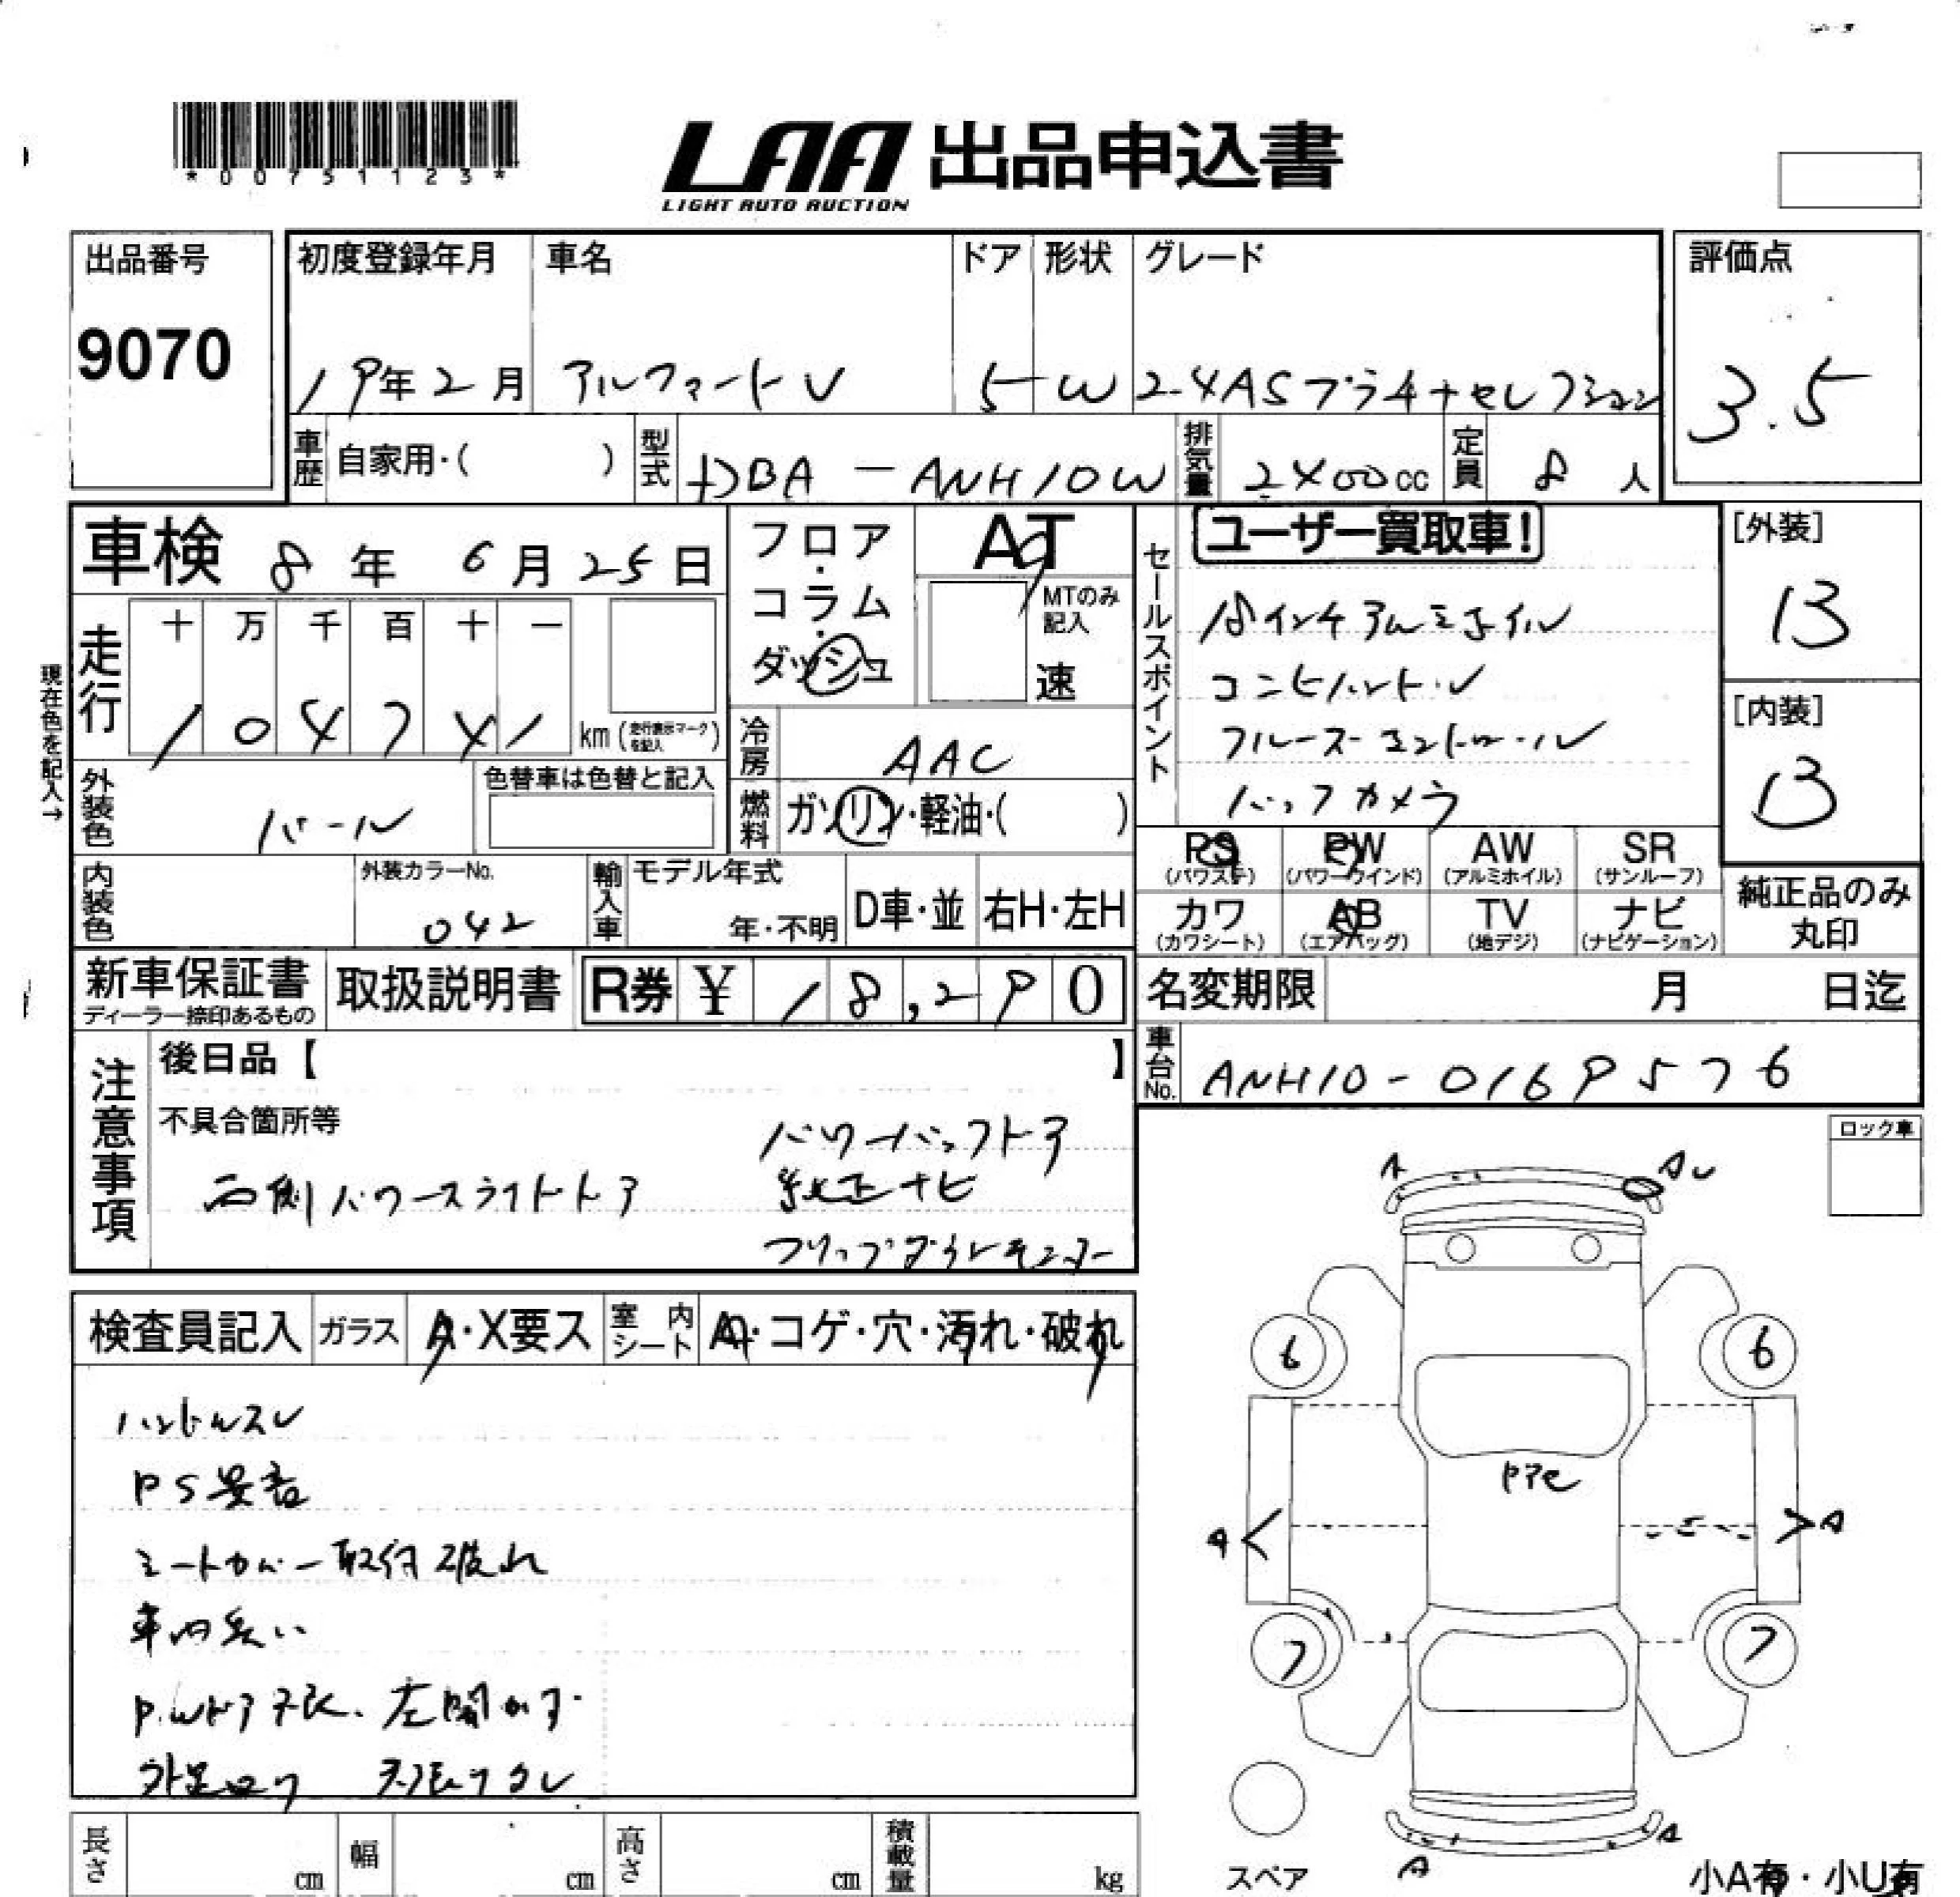 *00751123*
LAA 出品申込書
LIGHT AUTO AUCTION
出品番号 初度登録年月 車名 ドア 形状 グレード 評価点
9070 19年2月 アルファードV 5 W 2.4ASプラチナセレクション 3.5
車歴 自家用・( ) 型式 DBA-ANH10W 排気量 2400cc 定員 8人
車検 8年6月25日 フロア・コラム・ダッシュ AT
MTのみ記入 速
セールスポイント ユーザー買取車!
18インチアルミホイル
コンビハンドル
クルーズコントロール
バックカメラ
[外装] 13
[内装] 13
現在色を記入→
走行 十 万 千 百 十 一
1 0 4 7 4 1 km (走行表示マークを記入)
冷房 AAC
外装色 パール 色替車は色替と記入 燃料 ガソリン・軽油・( )
PS (パワステ) PW (パワーウインド) AW (アルミホイル) SR (サンルーフ)
カワ (カワシート) AB (エアバッグ) TV (地デジ) ナビ (ナビゲーション) 純正品のみ丸印
内装色 外装カラーNo. 042 輸入車 モデル年式 年・不明 D車・並 右H・左H
新車保証書 ディーラー捺印あるもの 取扱説明書 R券 ¥ 18,290
名変期限 月 日迄
車台No. ANH10-0169576
注意事項 後日品【 】
不具合箇所等
パワーバックドア
両側パワースライドドア 純正ナビ
フリップダウンモニター
ロック車
検査員記入 ガラス A・X要ス 室内シート A・コゲ・穴・汚れ・破れ
ハンドルスレ
PS異音
シートカバー取付破れ
車内臭い
P.Wドア不良、左開かず
天張ワレ
A AU
6 6
A A
7 7
A A
スペア
小A有・小U有
長さ cm 幅 cm 高さ cm 積載量 kg